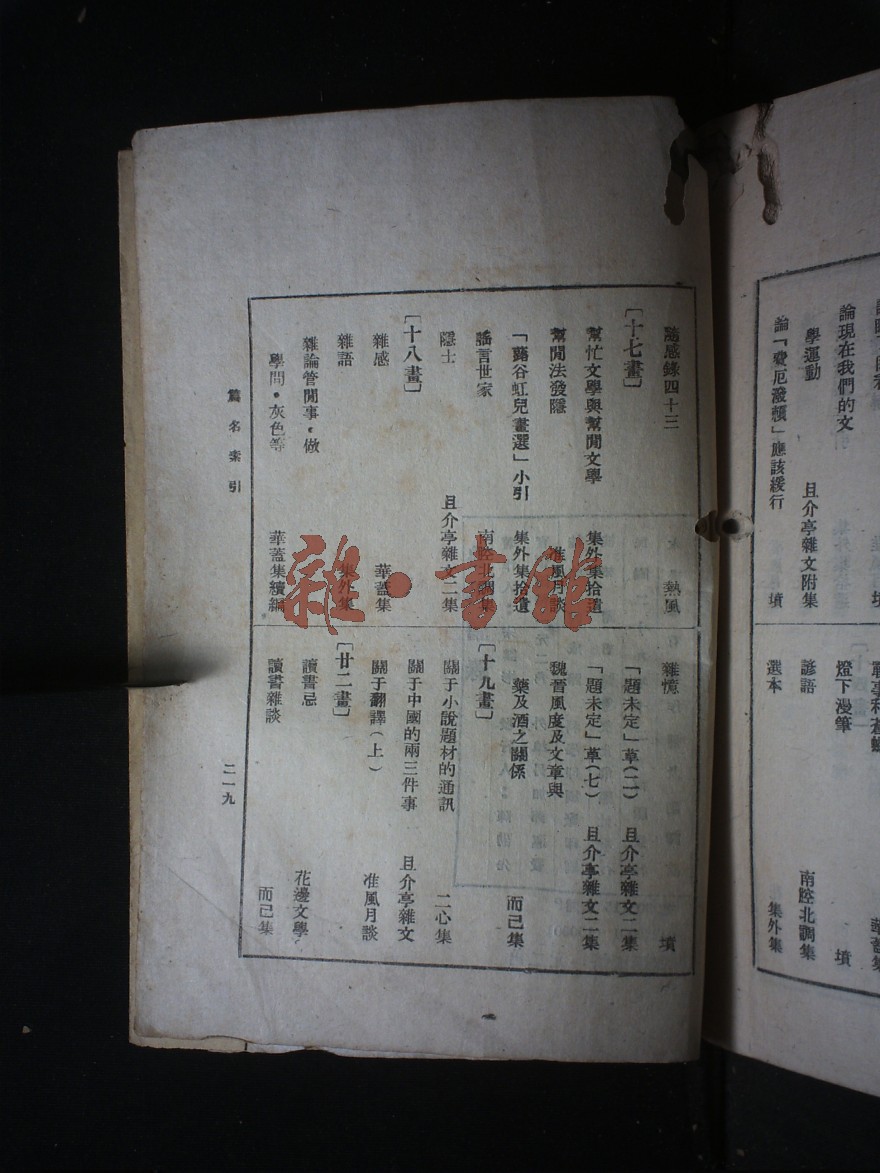 論現在我們的文
學運動 且介亭雜文附集
論「費厄潑賴」應該緩行 墳
戰事和
燈下漫筆 墳
諺語 南腔北調集
選本 集外集
隨感錄四十三 熱風
[十七畫]
幫忙文學與幫閒文學 集外集拾遺
幫閒法發隱 准風月談
「蕗谷虹兒畫選」小引 集外集拾遺
謠言世家 南腔北調集
隱士 且介亭雜文二集
[十八畫]
雜感 華蓋集
雜語 集外集
雜論管閒事・做
學問・灰色等 華蓋集續編
雜憶 墳
「題未定」草(二) 且介亭雜文二集
「題未定」草(七) 且介亭雜文二集
魏晉風度及文章與
藥及酒之關係 而已集
[十九畫]
關于小說題材的通訊 二心集
關于中國的兩三件事 且介亭雜文
關于翻譯(上) 准風月談
[廿二畫]
讀書忌 花邊文學
讀書雜談 而已集
篇名索引
二一九
雜・書館